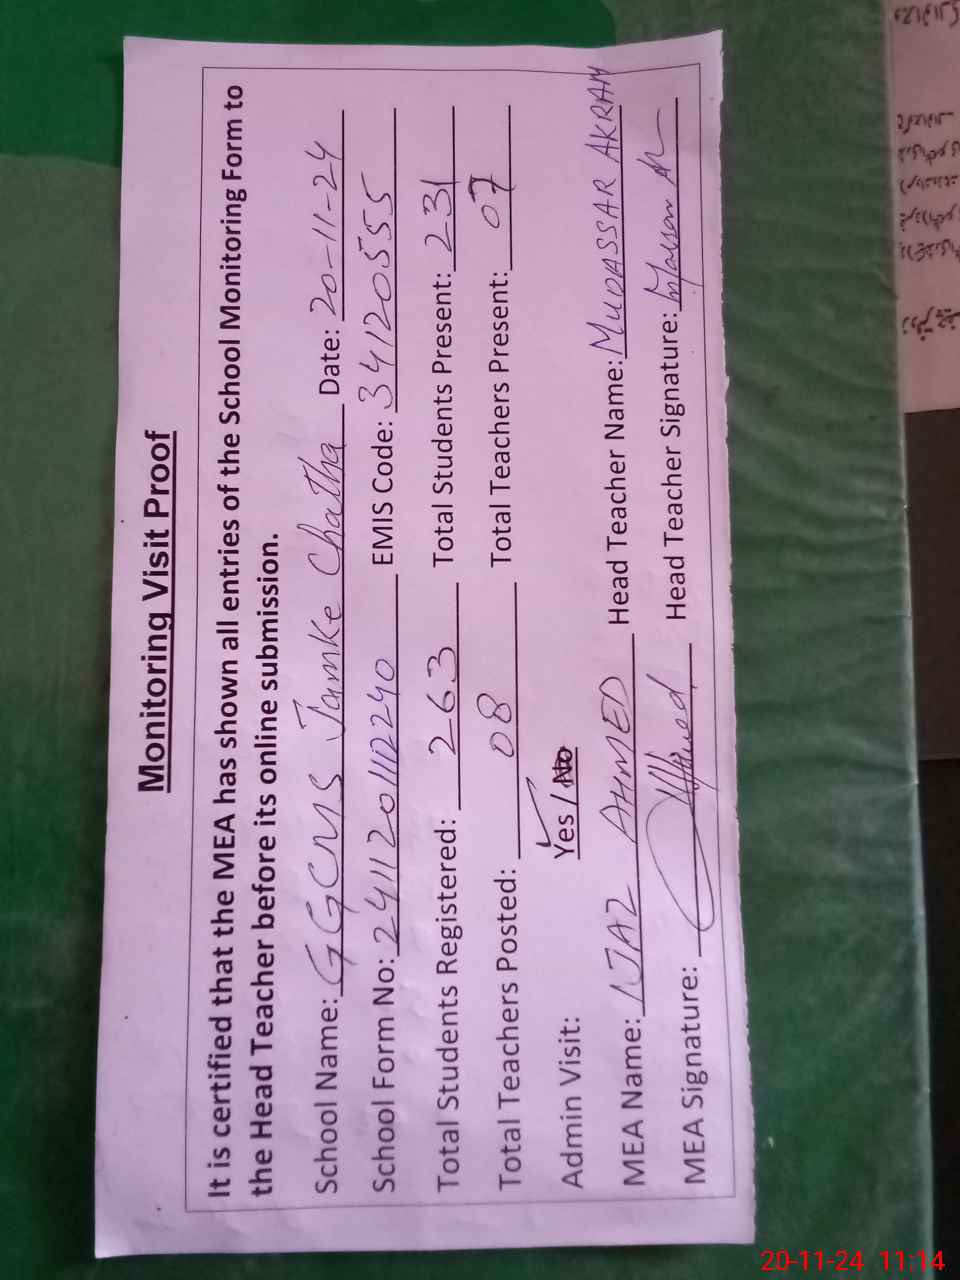 Monitoring Visit Proof
It is certified that the MEA has shown all entries of the School Monitoring Form to
the Head Teacher before its online submission.
School Name: GGCMS Jamke Chatha Date: 20-11-24
School Form No: 241120112240 EMIS Code: 34120555
Total Students Registered: 263 Total Students Present: 231
Total Teachers Posted: 08 Total Teachers Present: 07
Admin Visit: Yes / No
MEA Name: IJAZ AHMED Head Teacher Name: MUDASSAR AKRAM
MEA Signature: Head Teacher Signature:
20-11-24 11:14